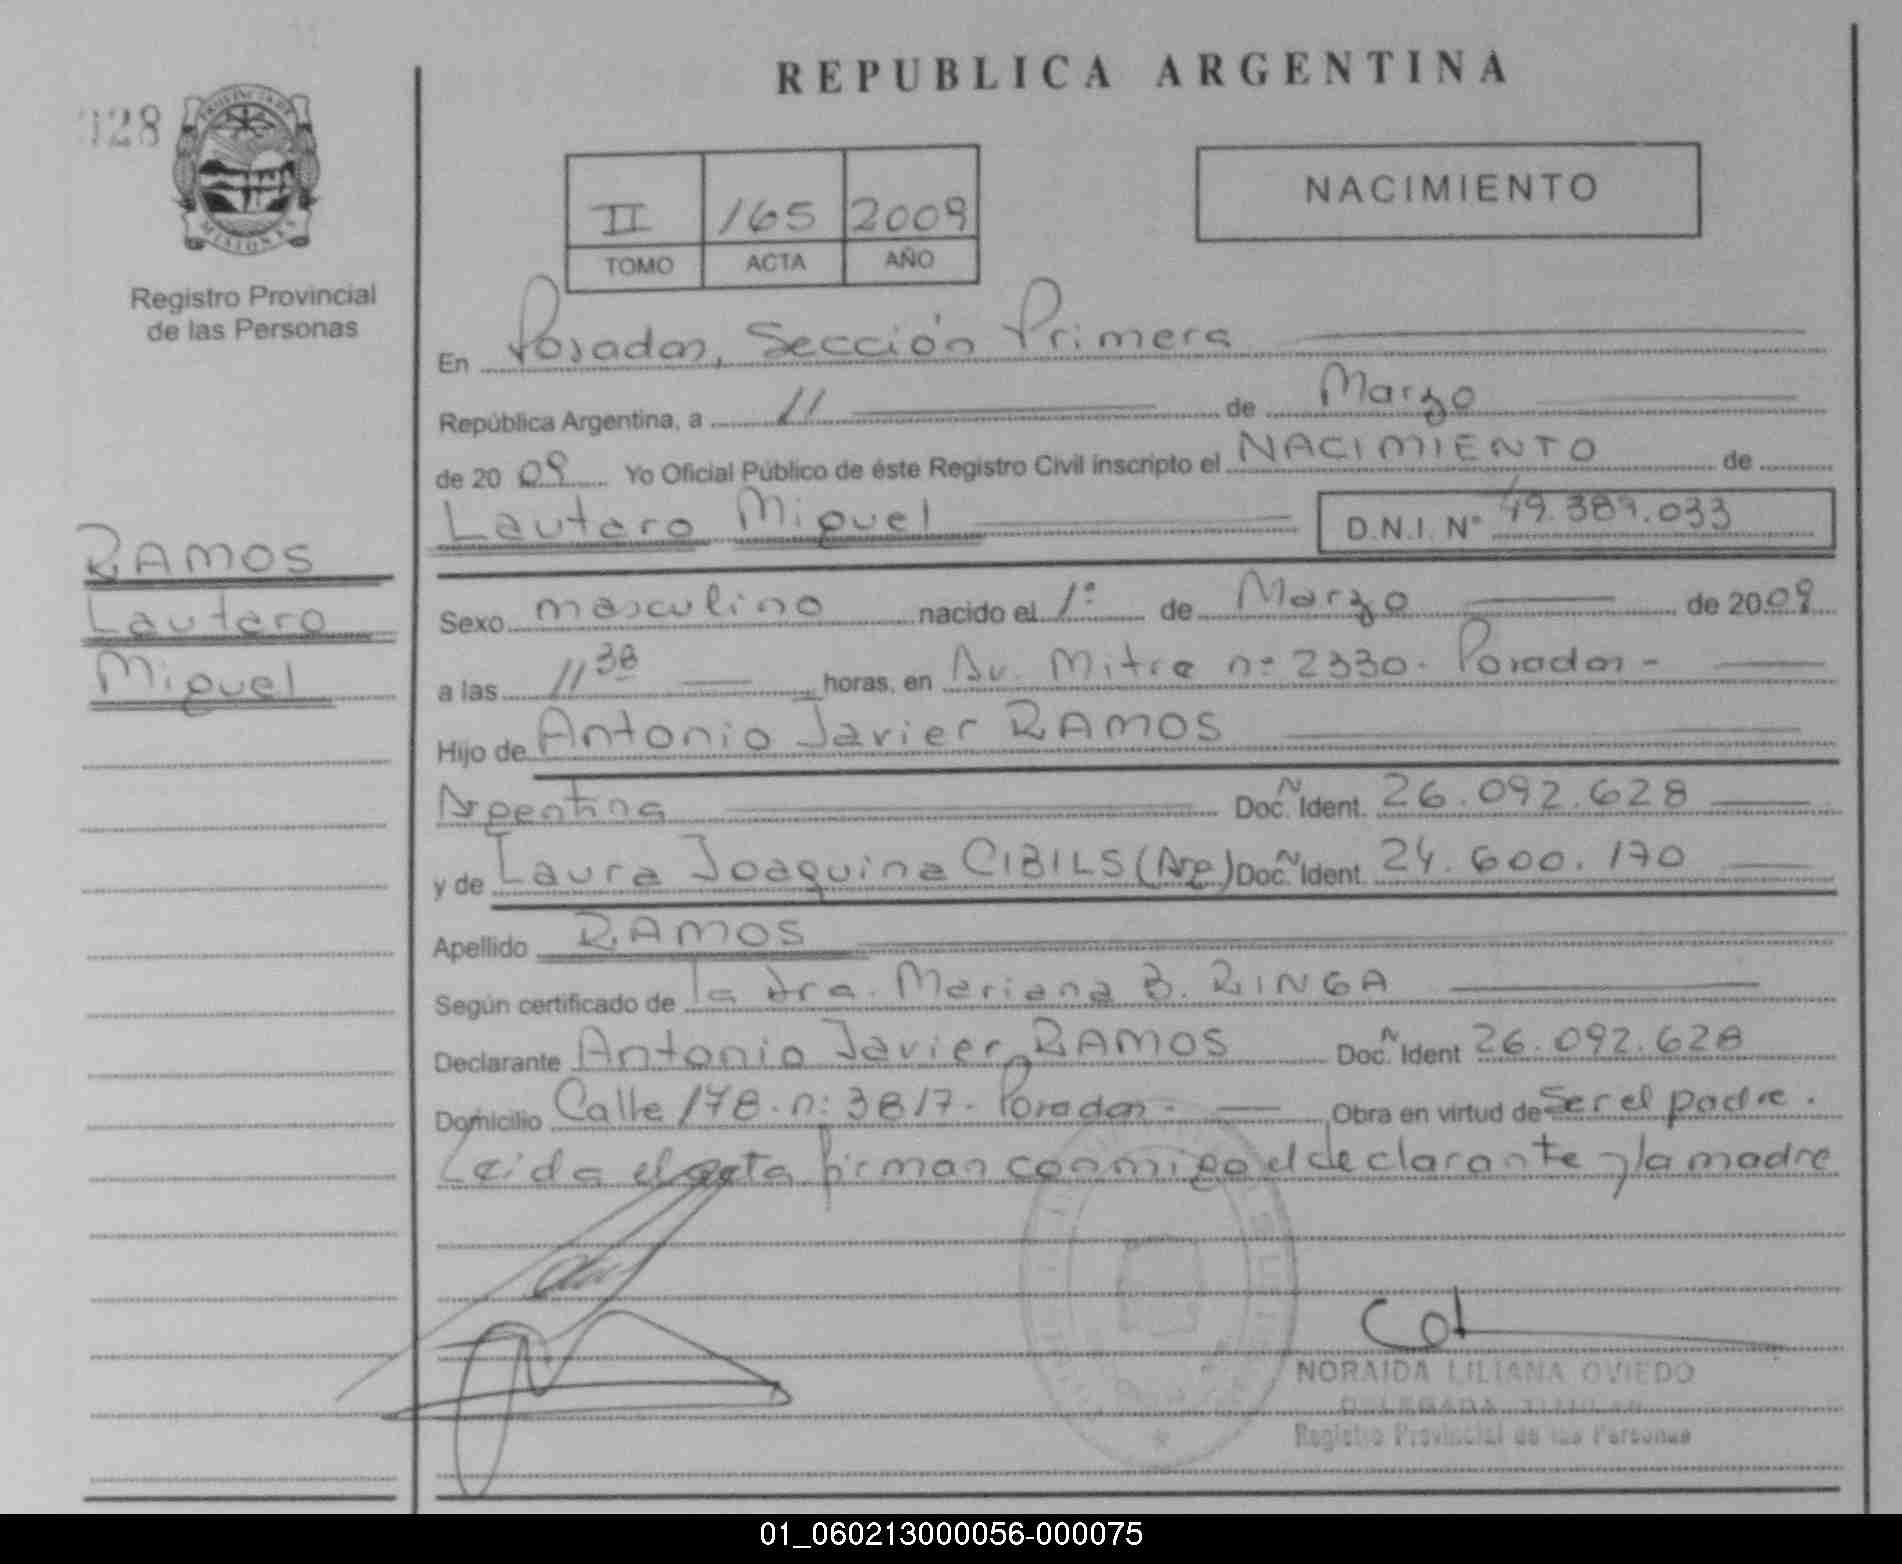 REPUBLICA ARGENTINA
028
PROVINCIA DE
MISIONES
Registro Provincial
de las Personas
II 165 2009
TOMO ACTA AÑO
NACIMIENTO
En Posadas, Sección Primera
República Argentina, a 11 de Marzo
de 2009 Yo Oficial Público de éste Registro Civil inscripto el NACIMIENTO de
Lautaro Miguel D.N.I. N° 49.389.033
RAMOS
Lautaro
Miguel
Sexo masculino nacido el 1° de Marzo de 2009
a las 11 38 horas, en Av. Mitre n° 2330. Posadas -
Hijo de Antonio Javier RAMOS
Argentina Doc. Ñ Ident. 26.092.628
y de Laura Joaquina CIBILS (Arg) Doc. Ñ Ident. 24.600.170
Apellido RAMOS
Según certificado de la dra. Mariana B. RINGA
Declarante Antonio Javier RAMOS Doc. Ñ Ident 26.092.628
Domicilio Calle 178. n: 3817. Posadas. Obra en virtud de Ser el padre.
Leida el acta firman conmigo el declarante y la madre
NORAIDA LILIANA OVIEDO
DELEGADA TITULAR
Registro Provincial de las Personas
01_060213000056-000075